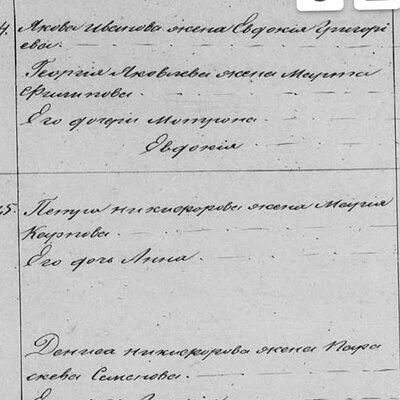 4. Якова Иванова жена Евдокія Григорі
ева.
Георгія Яковлева жена Марта
Филипова.
Его дочери Мотрона.
Евдокія
5. Петра Никифорова жена Марія
Карпова.
Его дочь Анна.
Дениса Никифорова жена Пара
скева Семенова.